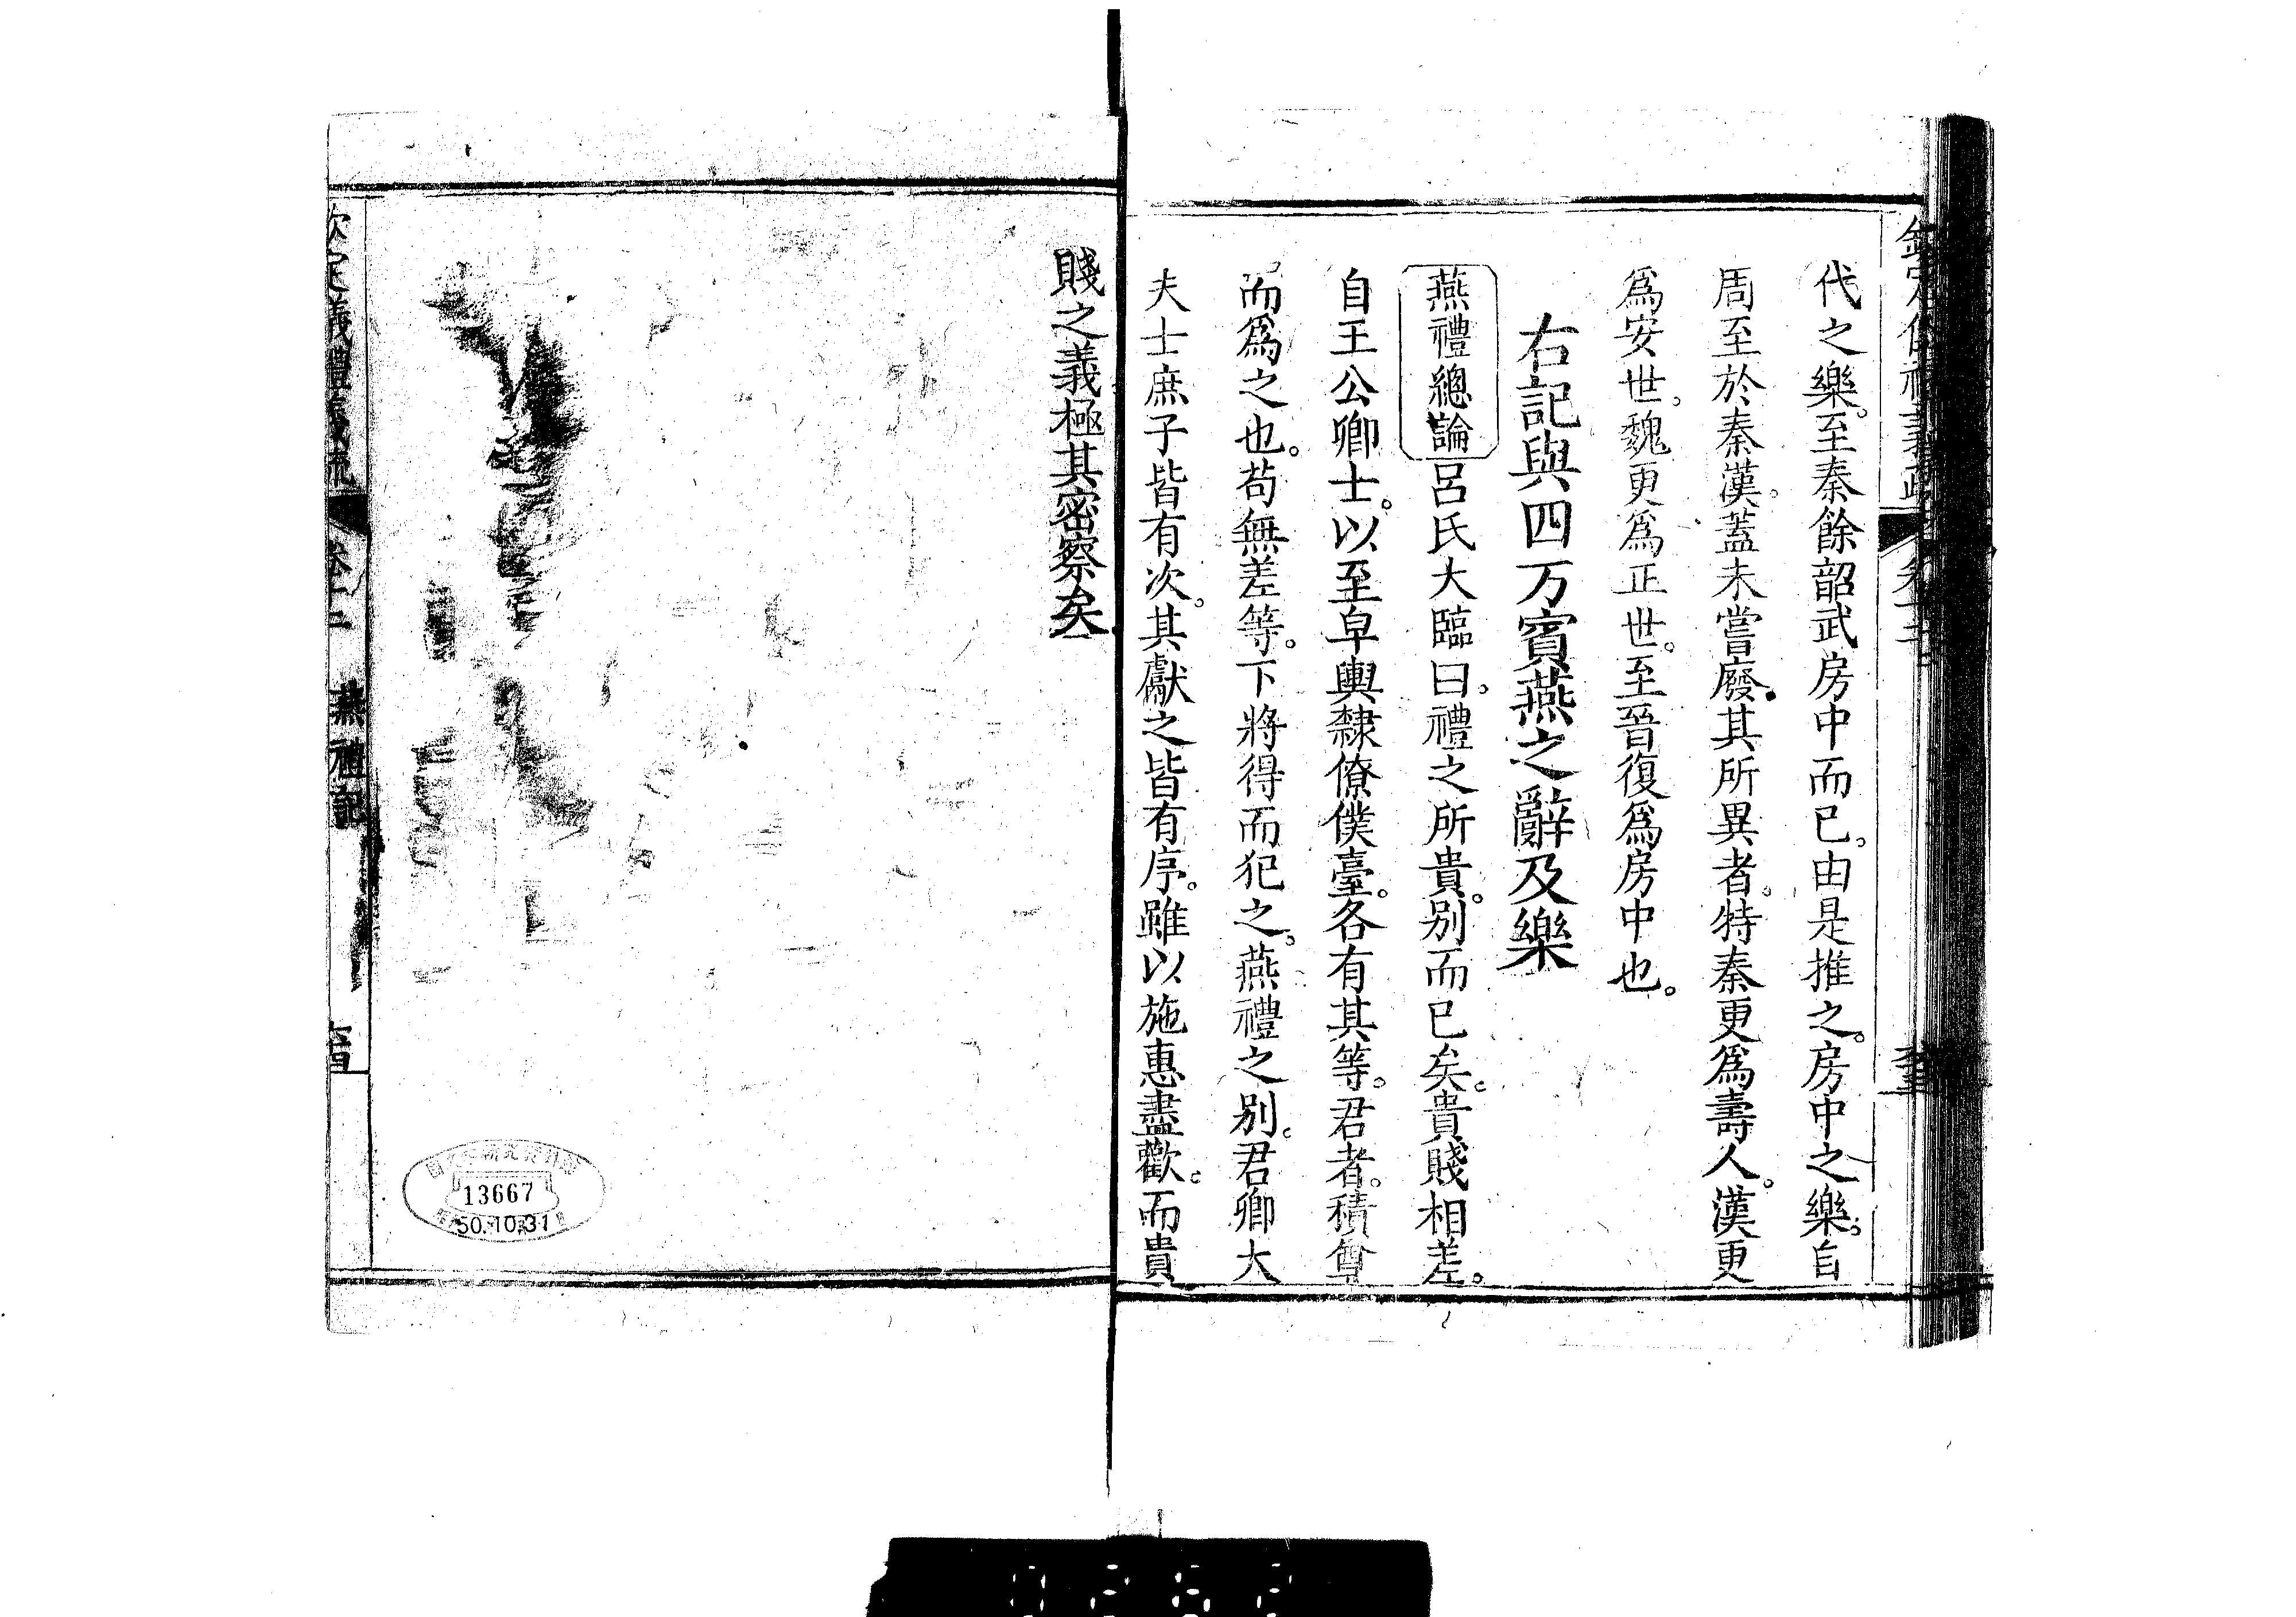 代之樂。至秦餘韶武房中而已。由是推之。房中之樂。自
周至於秦漢。蓋未嘗廢。其所異者。特秦更爲壽人。漢更
爲安世。魏更爲正世。至晉復爲房中也。
右記與四方賓燕之辭及樂
燕禮總論呂氏大臨曰。禮之所貴。别而已矣。貴賤相差。
自王公卿士。以至皁輿隸僚僕臺。各有其等。君者。積尊
而爲之也。苟無差等。下將得而犯之。燕禮之别。君卿大
夫士庶子皆有次。其獻之皆有序。雖以施惠盡歡。而貴
賤之義極其密察矣
欽定儀禮義疏 卷十二 燕禮記
13667
50.10.31